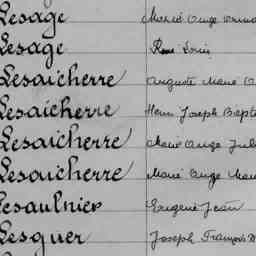 Lesage Marie Ange
Lesage René Louis
Lesaicherre Auguste Marie
Lesaicherre Henri Joseph
Lesaicherre Marie Ange
Lesaicherre Marie Ange
Lesaulnier Eugène Jean
Lesquer Joseph François